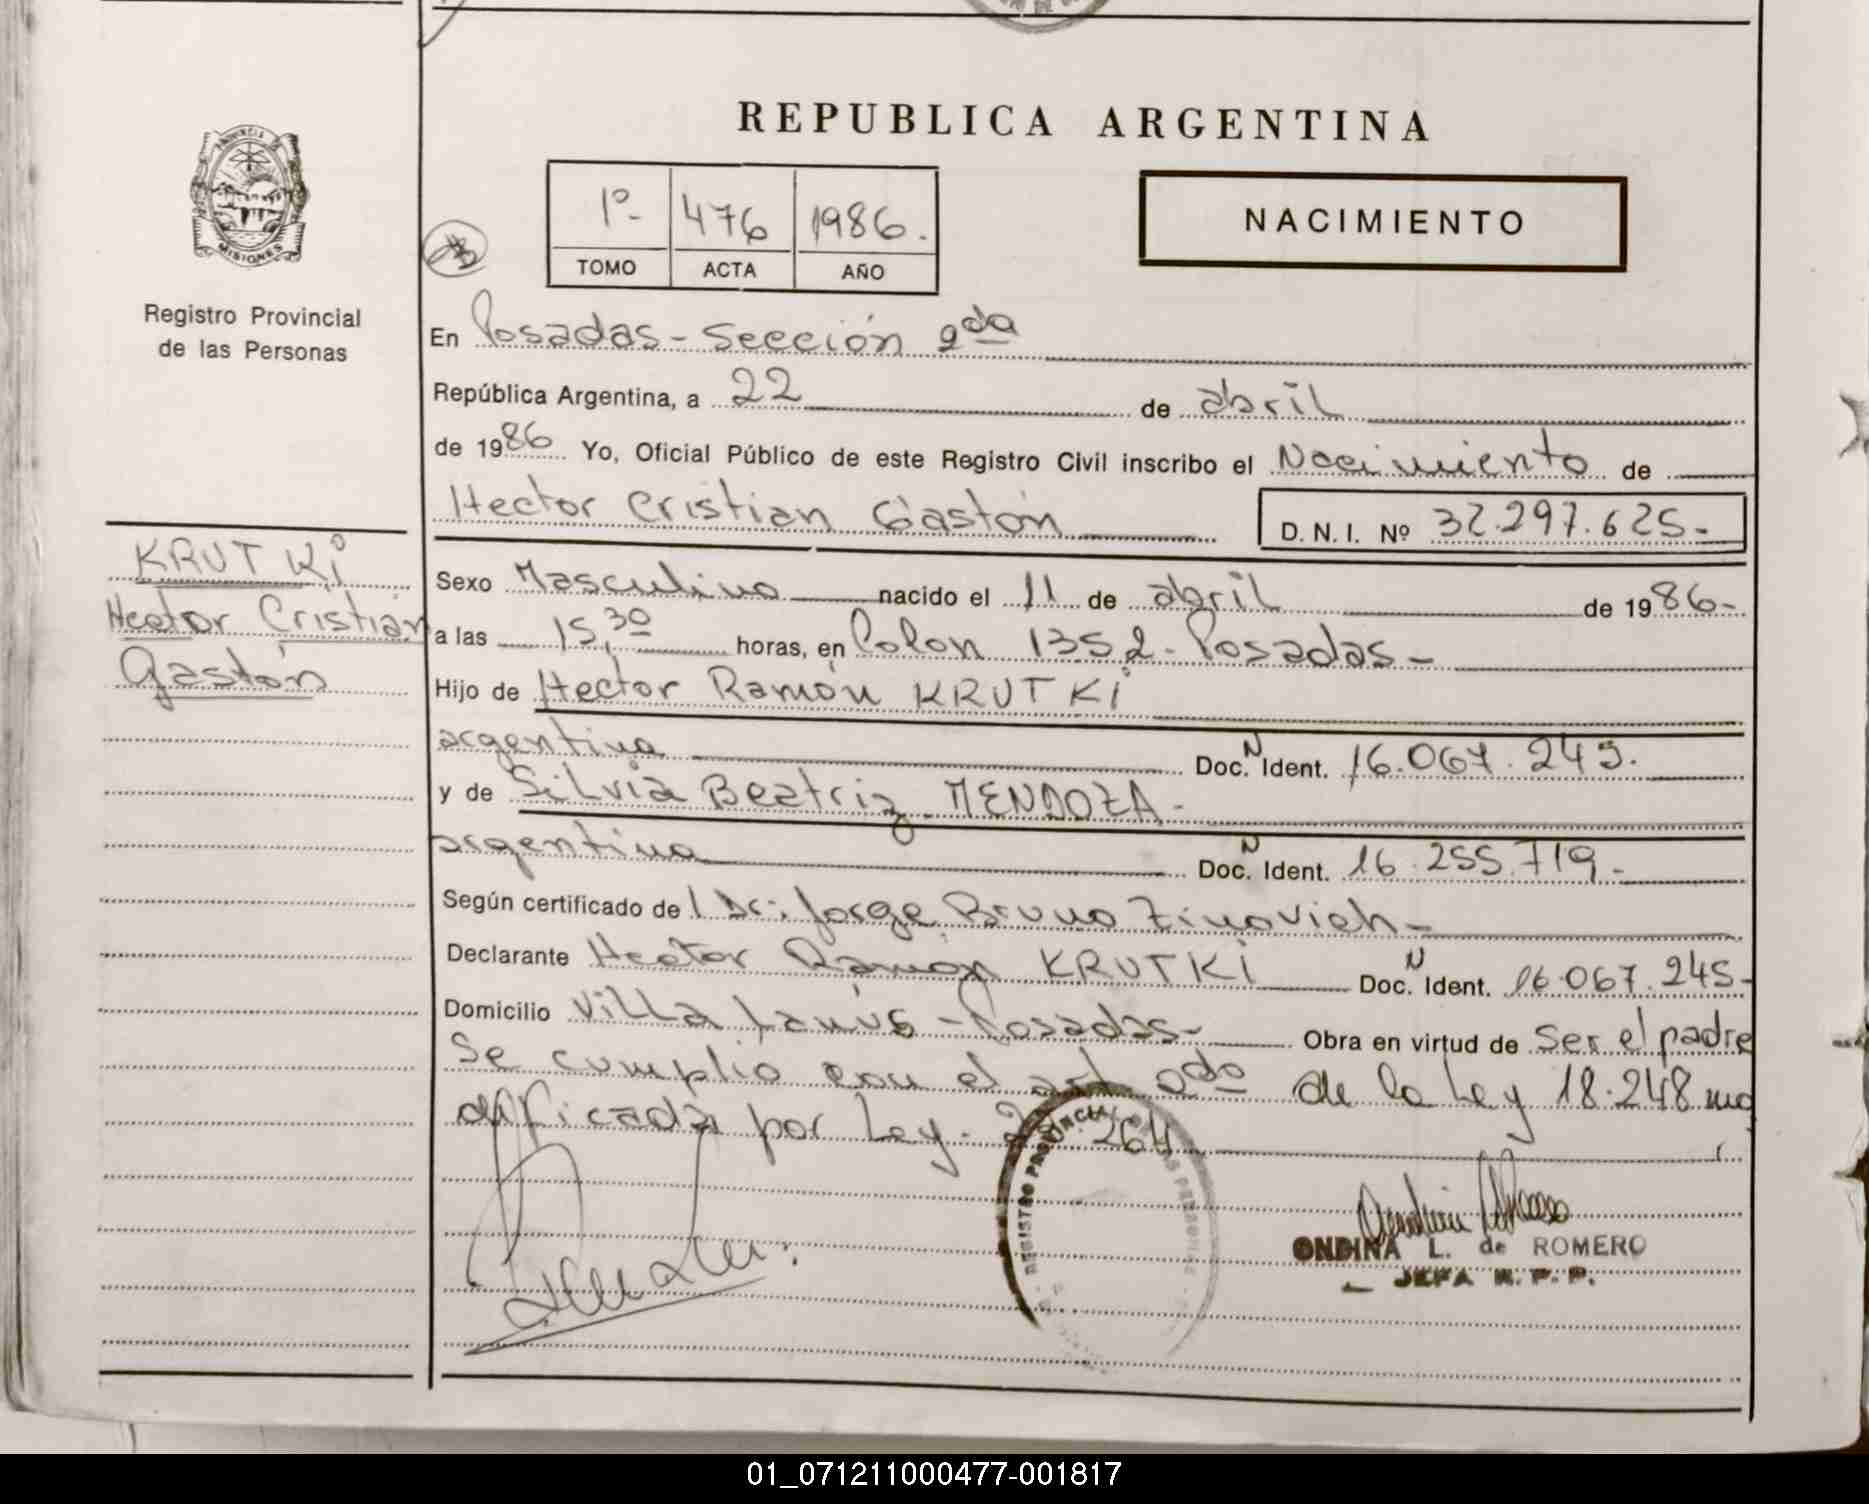 REPUBLICA ARGENTINA
PROVINCIA DE
MISIONES
Registro Provincial
de las Personas
1º- 476 1986.
TOMO ACTA AÑO
NACIMIENTO
En Posadas - Sección 2da
República Argentina, a 22 de abril
de 1986 Yo, Oficial Público de este Registro Civil inscribo el Nacimiento de
Hector Cristian Gastón D.N.I. Nº 32.297.625-
KRUTKi
Hector Cristian
Gastón
Sexo Masculino nacido el 11 de abril de 1986-
a las 15,30 horas, en Colon 1352 - Posadas -
Hijo de Hector Ramón KRUTKi
argentina Doc. N Ident. 16.067.245.
y de Silvia Beatriz MENDOZA -
argentina Doc. N Ident. 16.255.719-
Según certificado del Dr: Jorge Bruno Zinovich -
Declarante Hector Ramón KRUTKi Doc. N Ident. 16.067.245-
Domicilio Villa Lanús - Posadas - Obra en virtud de Ser el padre
Se cumplio con el art 2do de la Ley 18.248 mo
dificada por Ley - 264
REGISTRO PROVINCIAL DE LAS PERSONAS
ONDINA L. de ROMERO
JEFA R. P. P.
01_071211000477-001817